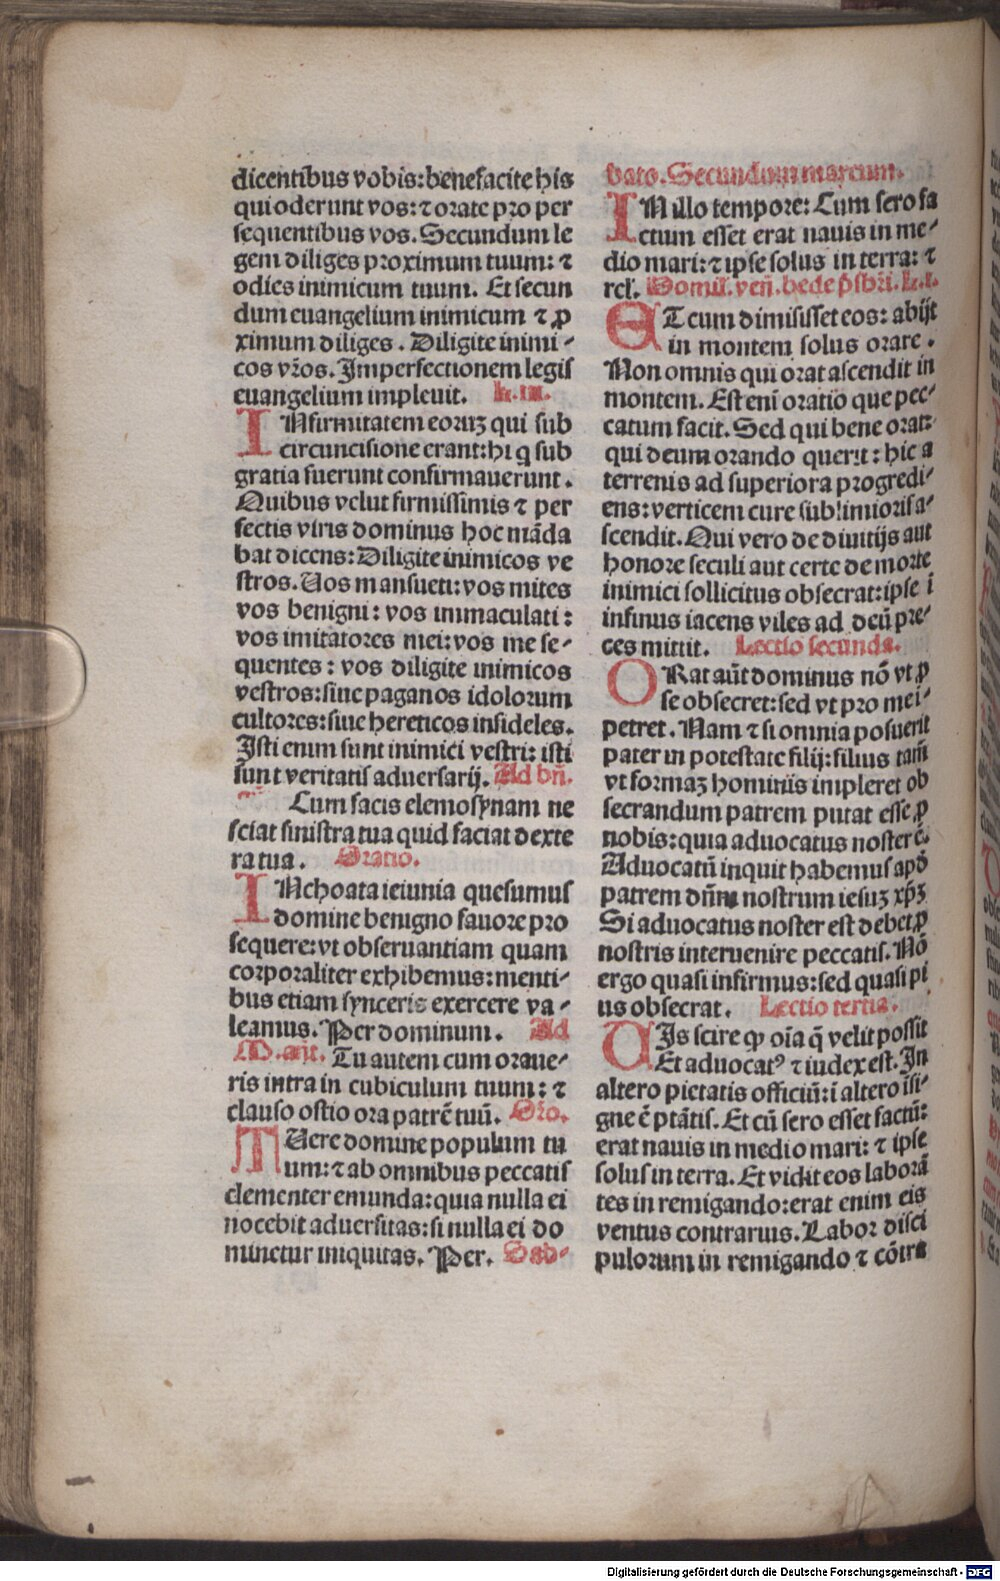 dicentibus vobis: benefacite his
qui oderunt vos: ⁊ orate pro per
sequentibus vos. Secundum le
gem diliges proximum tuum: ⁊
odies inimicum tuum. Et secun
dum euangelium inimicum ⁊ ꝓ
ximum diliges. Diligite inimi-
cos vr̃os. Imperfectionem legis
euangelium impleuit. l. iii.
INfirmitatem eoruꝫ qui sub
circuncisione erant: hi q̃ sub
gratia fuerunt confirmauerunt.
Quibus velut firmissimis ⁊ per
fectis viris dominus hoc mãda
bat dicens: Diligite inimicos ve
stros. Uos mansueti: vos mites
vos benigni: vos immaculati:
vos imitatores mei: vos me se-
quentes: vos diligite inimicos
vestros: siue paganos idolorum
cultores: siue hereticos infideles.
Isti enim sunt inimici vestri: isti
sunt veritatis aduersarij. Ad bñ.
Cum facis elemosynam ne
sciat sinistra tua quid faciat dexte
ra tua. Oratio.
INchoata ieiunia quesumus
domine benigno fauore pro
sequere: vt obseruantiam quam
corporaliter exhibemus: menti-
bus etiam synceris exercere va-
leamus. Per dominum. Ad
M. añ. Tu autem cum oraue-
ris intra in cubiculum tuum: ⁊
clauso ostio ora patrẽ tuũ. Oro.
TUere domine populum tu
um: ⁊ ab omnibus peccatis
clementer emunda: quia nulla ei
nocebit aduersitas: si nulla ei do
minetur iniquitas. Per. Sab-
bato. Secundum marcum.
IN illo tempore: Cum sero fa
ctum esset erat nauis in me-
dio mari: ⁊ ipse solus in terra: ⁊
rel. Homil. veñ. bede p̃sbri. l. i.
ET cum dimisisset eos: abijt
in montem solus orare.
Non omnis qui orat ascendit in
montem. Est enĩ oratio que pec-
catum facit. Sed qui bene orat:
qui deum orando querit: hic a
terrenis ad superiora progredi-
ens: verticem cure sublimioris a-
scendit. Qui vero de diuitijs aut
honore seculi aut certe de morte
inimici sollicitus obsecrat: ipse ĩ
infimis iacens viles ad deũ pre-
ces mittit. Lectio secunda.
ORat aũt dominus nõ vt ꝓ
se obsecret: sed vt pro me i-
petret. Nam ⁊ si omnia posuerit
pater in potestate filij: filius tam̃
vt formaꝫ hominis impleret ob
secrandum patrem putat esse ꝓ
nobis: quia aduocatus noster ẽ.
Aduocatũ inquit habemus apð
patrem dñm nostrum iesuꝫ xp̃ꝫ
Si aduocatus noster est debet ꝓ
nostris interuenire peccatis. Nõ
ergo quasi infirmus: sed quasi pi
us obsecrat. Lectio tertia.
UIs scire ꝙ oĩa q̃ velit possit
Et aduocatꝰ ⁊ iudex est. In
altero pietatis officiũ: ĩ altero ĩsi-
gne ẽ ptãtis. Et cũ sero esset factũ:
erat nauis in medio mari: ⁊ ipse
solus in terra. Et vidit eos laborã
tes in remigando: erat enim eis
ventus contrarius. Labor disci
pulorum in remigando ⁊ cõtra
Digitalisierung gefördert durch die Deutsche Forschungsgemeinschaft - DFG